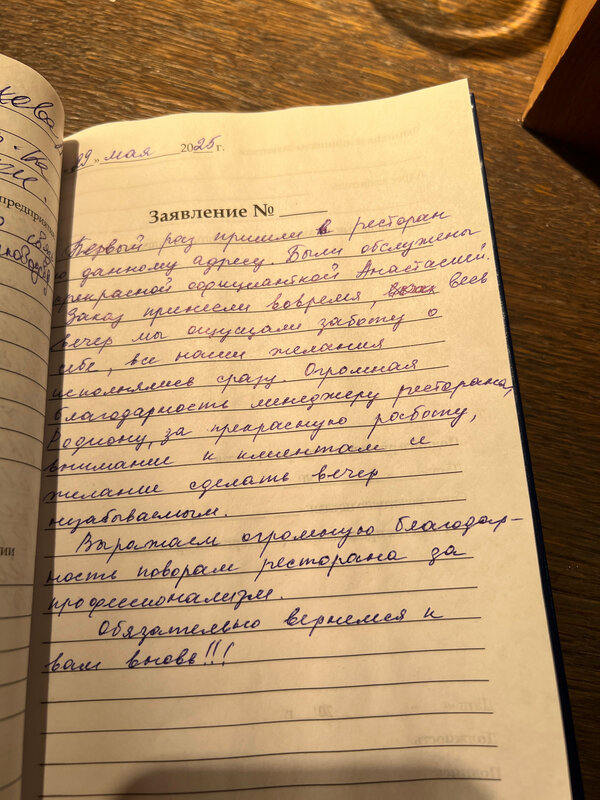 хева
предприятия
«29» мая 2025 г.
Заявление №
Первый раз пришли в ресторан
по данному адресу. Были обслужены
прекрасной официанткой Анастасией.
Заказ принесли вовремя, весь
вечер мы ощущали заботу о
себе, все наши желания
исполнялись сразу. Огромная
благодарность менеджеру ресторана,
Родиону, за прекрасную работу,
внимание к клиентам и
желание сделать вечер
незабываемым.
Выражаем огромную благодар-
ность поварам ресторана за
профессионализм.
Обязательно вернемся к
вам вновь!!!
ии